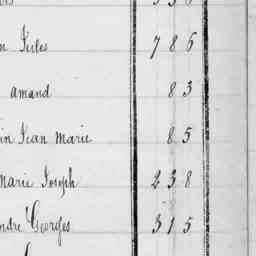 n Jules 786
amand 83
in Jean Marie 85
Marie Joseph 238
ndre Georges 315